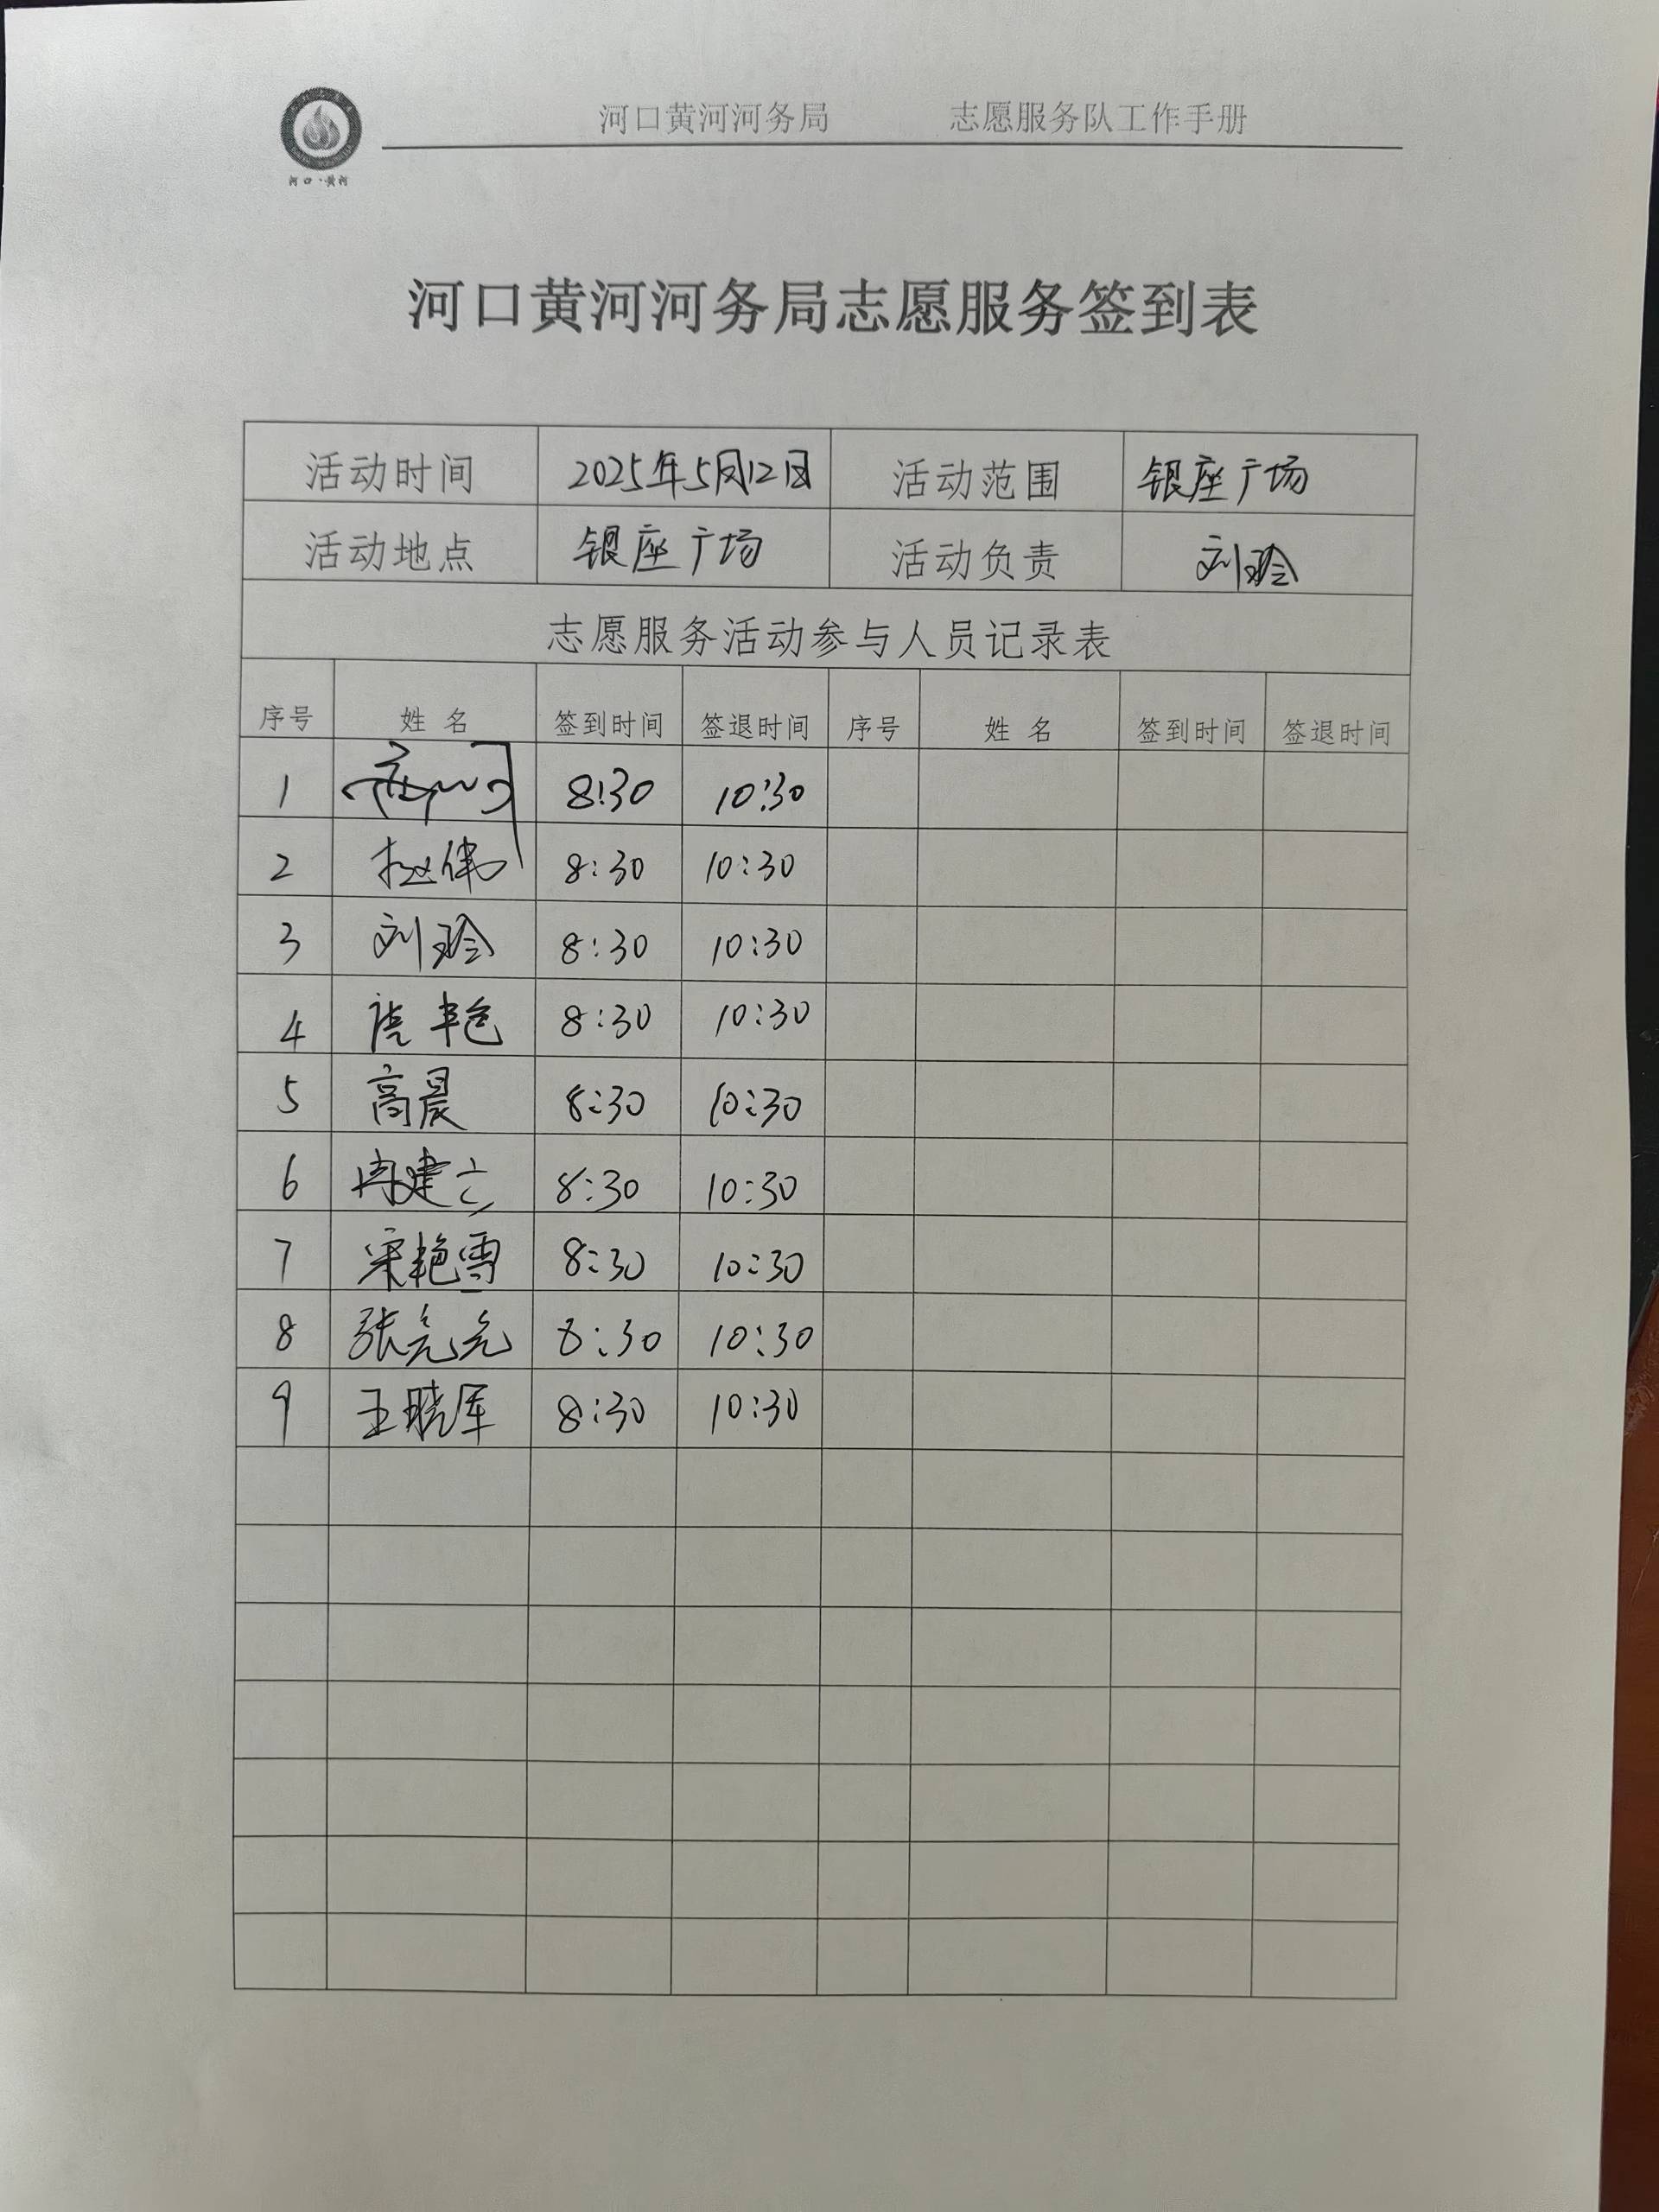 河口黄河河务局 志愿服务队工作手册
河口·黄河
河口黄河河务局志愿服务签到表
活动时间 2025年5月12日 活动范围 银座广场
活动地点 银座广场 活动负责 刘玲
志愿服务活动参与人员记录表
序号 姓 名 签到时间 签退时间 序号 姓 名 签到时间 签退时间
1 8:30 10:30
2 赵伟 8:30 10:30
3 刘玲 8:30 10:30
4 8:30 10:30
5 高晨 8:30 10:30
6 冉建 8:30 10:30
7 宋艳雪 8:30 10:30
8 张亮亮 8:30 10:30
9 王晓军 8:30 10:30